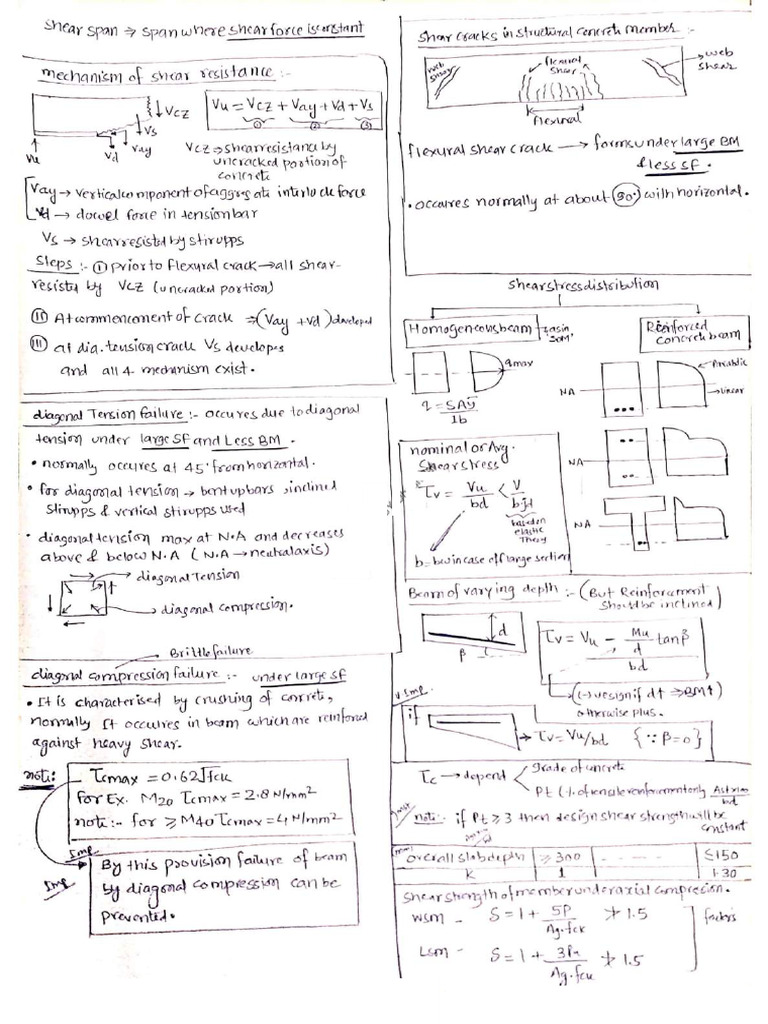 Shear span ⇒ span where shear force is constant
mechanism of shear resistance :-
Vu = Vcz + Vay + Vd + Vs
① ② ③
Vcz
Vs
Vay
Vd
Vu
Vcz ⇒ shear resistance by
uncracked portion of
concrete
Vay → vertical component of aggregate interlock force
Vd → dowel force in tension bar
Vs → shear resisted by stirupps
Steps :- ① prior to flexural crack → all shear-
resisted by Vcz (uncracked portion)
Ⅱ At commencement of crack ⇒ (Vay + Vd) developed
Ⅲ at dia. tension crack Vs developes
and all 4 mechanism exist.
diagonal Tension failure :- occures due to diagonal
tension under large SF and Less BM.
• normally occures at 45° from horizontal.
• for diagonal tension → bent up bars, inclined
stirupps & vertical stirupps used
• diagonal tension max at N.A and decreases
above & below N.A (N.A → neutral axis)
diagonal Tension
diagonal compression.
Brittle failure
diagonal compression failure :- under large SF
• It is characterised by crushing of concrete,
normally It occures in beam which are reinforced
against heavy shear.
note: Tcmax = 0.62√fck
for Ex. M20 Tcmax = 2.8 N/mm²
note:- for ≥ M40 Tcmax = 4 N/mm²
Imp
Imp
By this provision failure of beam
by diagonal compression can be
prevented.
Shear cracks in structural concrete member :-
web shear
flexural
shear
web
shear
flexural
flexural shear crack → forms under large BM
& less SF.
• occures normally at about 90° with horizontal.
shear stress distribution
Homogeneous beam
as in
"SOM"
Reinforced
concrete beam
qmax
q = SAȳ
Ib
NA
Parabolic
Linear
NA
NA
nominal or Avg.
Shear stress
τv = Vu / bd < V / bjd
based on
elastic
Theory
b = bw in case of flange section
Beam of varying depth :- (But Reinforcement
should be inclined)
d
β
τv = Vu - Mu/d tanβ
bd
(-) ve sign if d↑ ⇒ BM↑
otherwise plus.
v.Imp
if
→ τv = Vu/bd {∵ β = 0}
τc → depend
grade of concrete
Pt (% of tensile reinforcement only Ast×100 / bd
note:- if Pt ≥ 3 then design shear strength will be
constant
overall slab depth ≥ 300 - - - - ≤ 150
k 1 1.30
Shear strength of member under axial compression.
WSM - S = 1 + 5P / Ag.fck ≯ 1.5
factors
LSM - S = 1 + 3Pu / Ag.fck ≯ 1.5